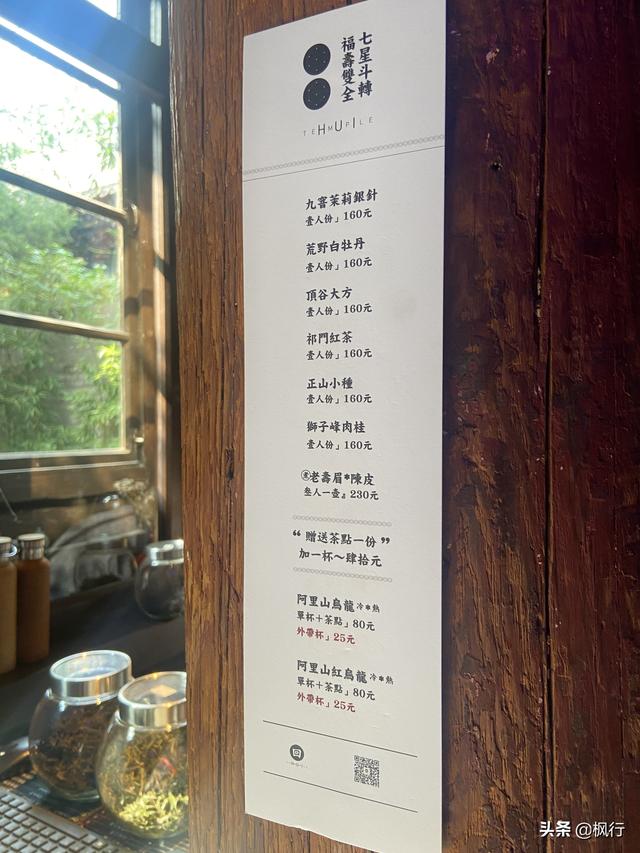 七星斗轉
福壽雙全
九窨茉莉銀針
壹人份」160元
荒野白牡丹
壹人份」160元
頂谷大方
壹人份」160元
祁門紅茶
壹人份」160元
正山小種
壹人份」160元
獅子峰肉桂
壹人份」160元
老壽眉*陳皮
叁人一壺』230元
“ 贈送茶點一份 ”
加一杯～肆拾元
阿里山烏龍 冷*熱
單杯＋茶點」80元
外帶杯」25元
阿里山紅烏龍 冷*熱
單杯＋茶點」80元
外帶杯」25元
回
头条 @枫行